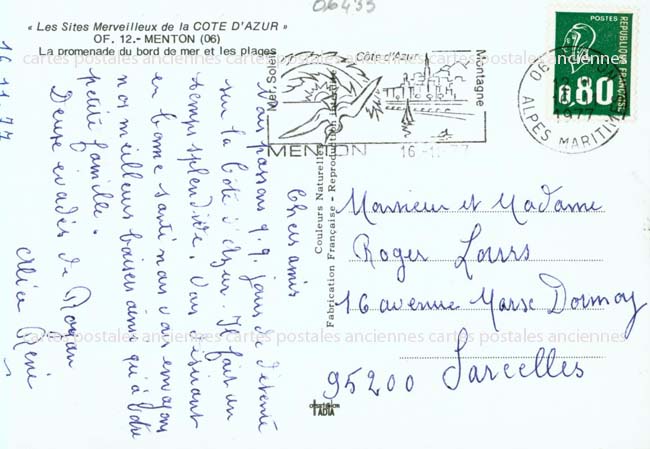 06433
« Les Sites Merveilleux de la COTE D'AZUR »
OF. 12.- MENTON (06)
La promenade du bord de mer et les plages
cartes postales anciennes cartes postales anciennes cartes postales anciennes
16.11.77
Chers amis
Nous passons q.q. jours de détente
sur la Côte d'Azur. Il fait un
temps splendide. Vous désirant
en bonne santé nous vous envoyons
nos meilleurs baisers ainsi qu'à votre
petite famille.
Deux évadés de Royan
René
Couleurs Naturelles
Fabrication Française - Reproduction interdite
Mer. Soleils
Côte d'Azur
Montagne
MENTON
16 -11-77
06 MENTON
1977
ALPES MARITIMES
POSTES
REPUBLIQUE FRANÇAISE
0,80
Monsieur et Madame
Roger
16 avenue Marx Dormoy
cartes postales anciennes cartes postales anciennes cartes postales anciennes
95200 Sarcelles
ADIA